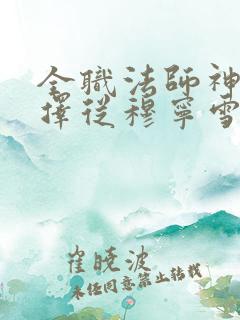 全職法師神
擇從穆寧雪
崔曉波
未经同意禁止转载